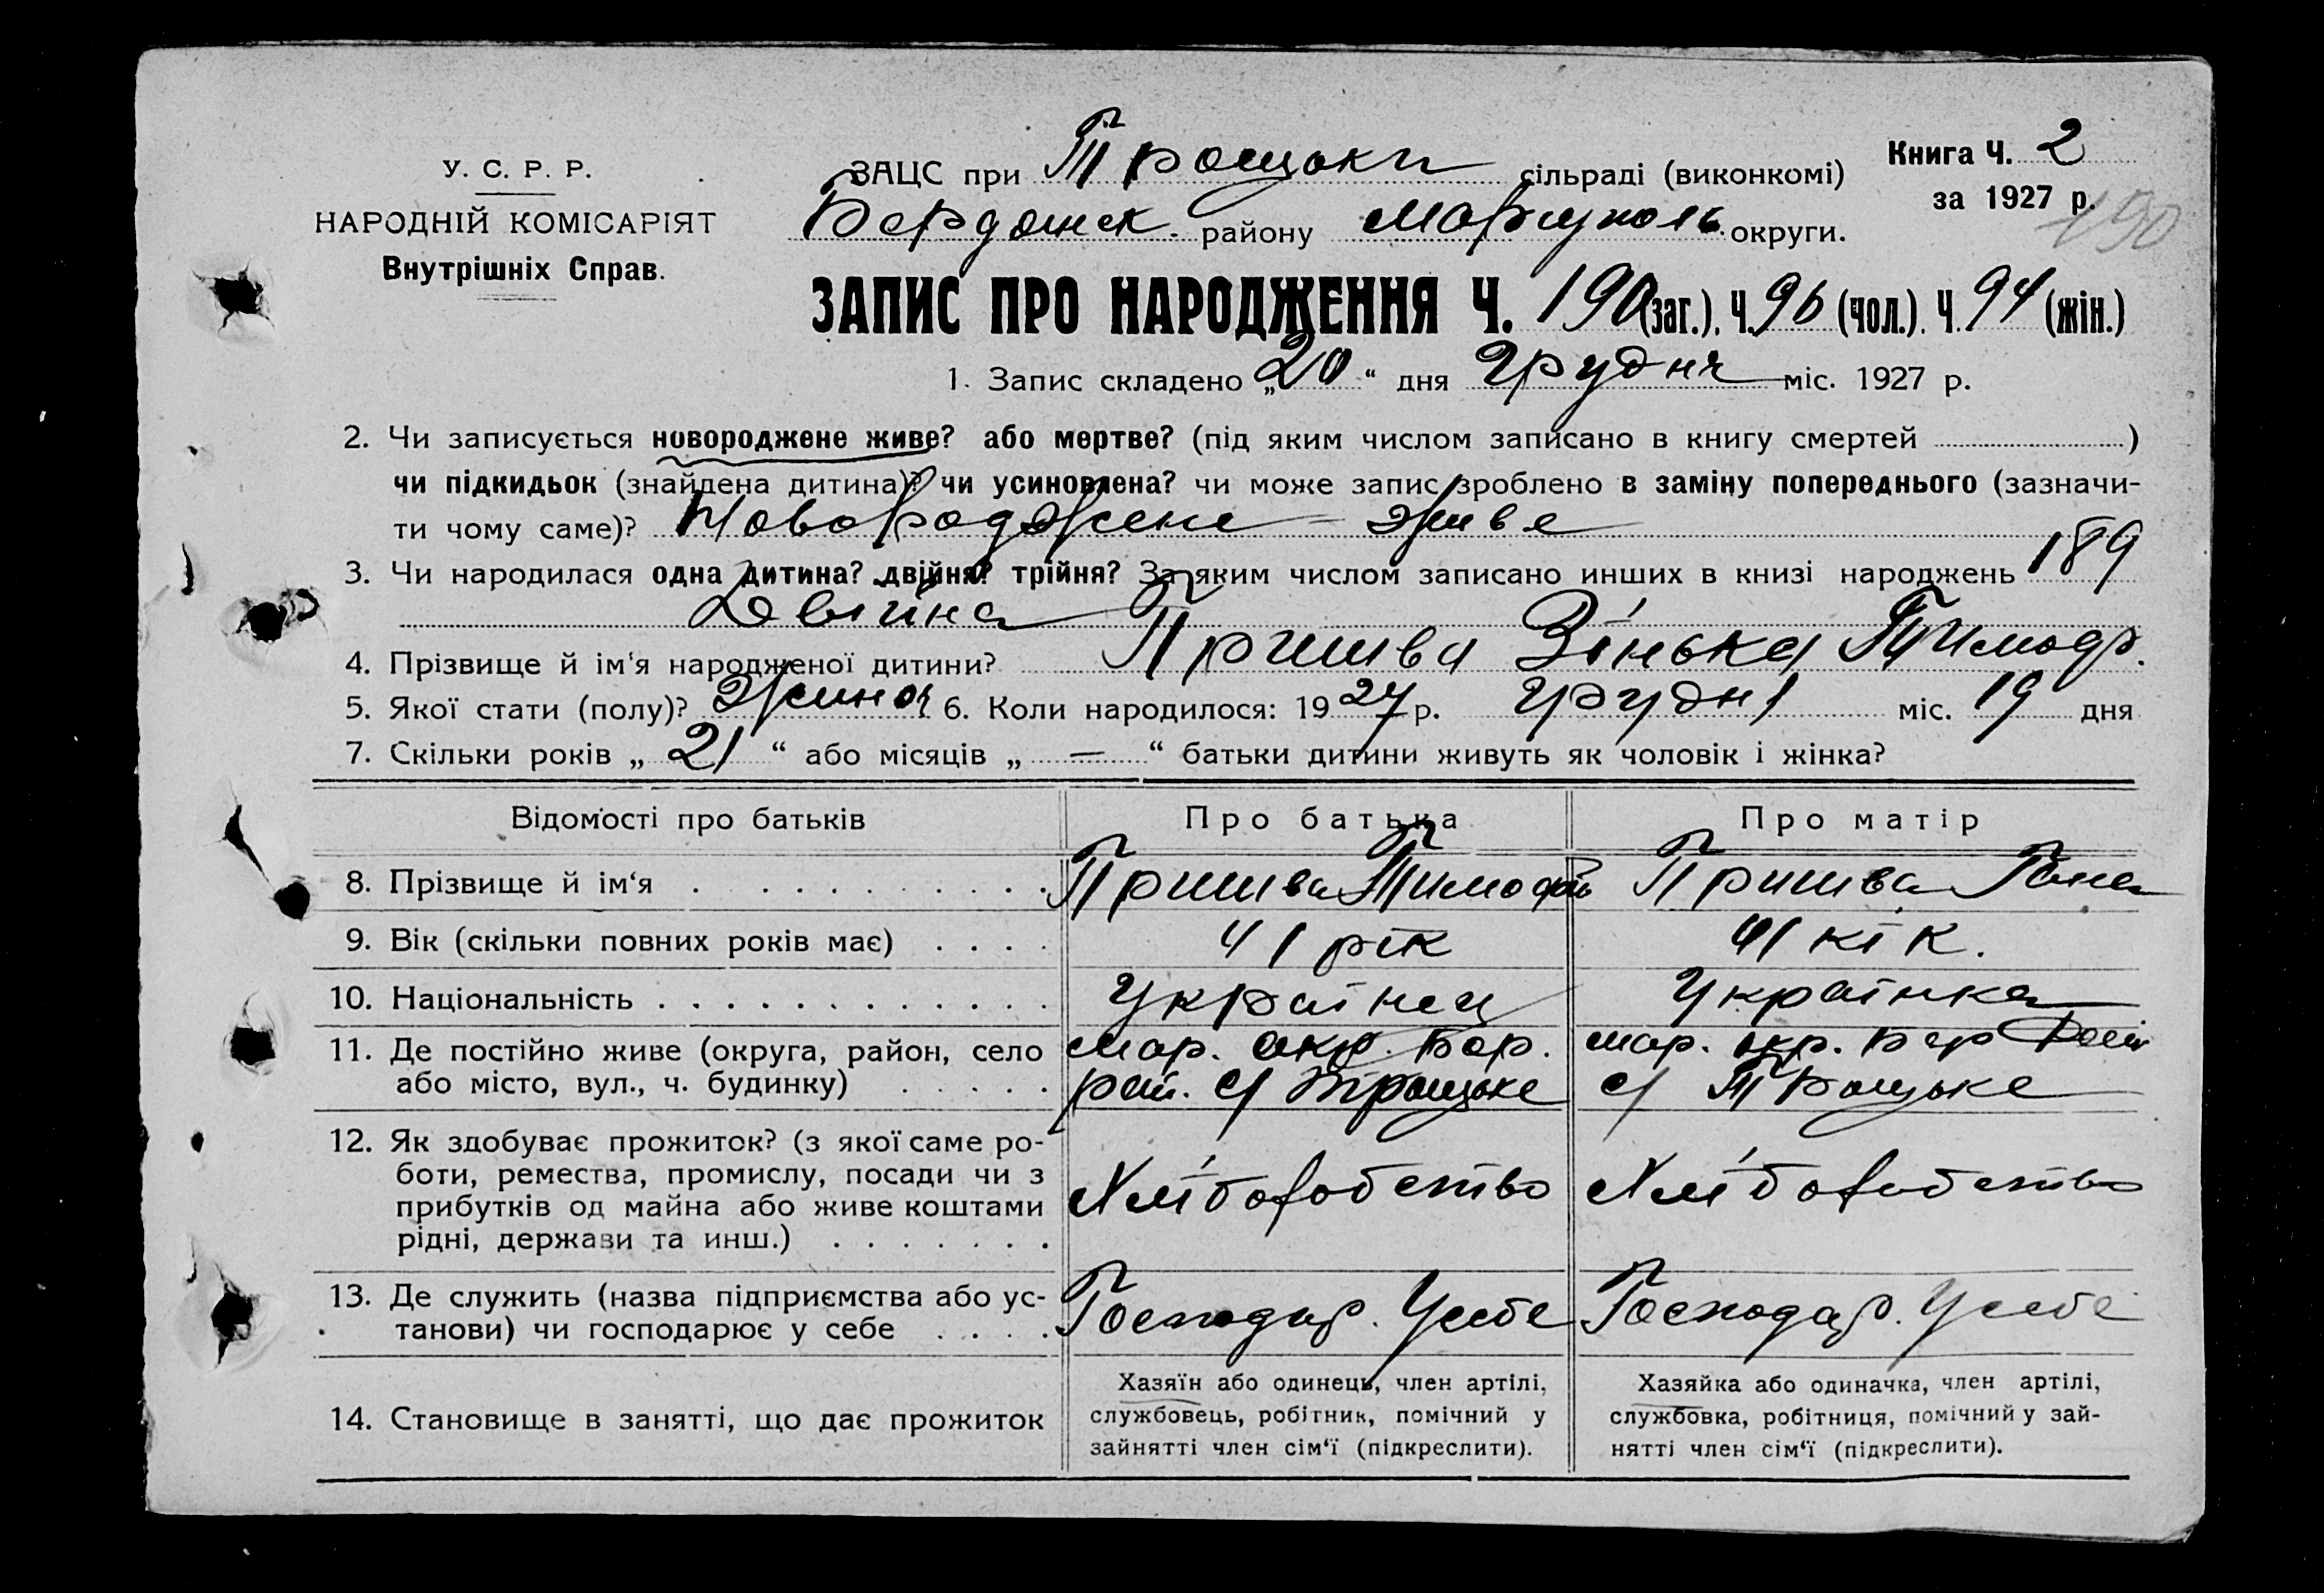 У. С. Р. Р.
НАРОДНІЙ КОМІСАРІЯТ
Внутрішніх Справ.
ЗАЦС при Троцьки сільраді (виконкомі)
Бердянск. району Маріуполь округи.
Книга Ч. 2
за 1927 р.
190
ЗАПИС ПРО НАРОДЖЕННЯ Ч. 190 (заг.). Ч. 96 (чол.). Ч. 94 (жін.)
1. Запис складено „20“ дня Грудня міс. 1927 р.
2. Чи записується новороджене живе? або мертве? (під яким числом записано в книгу смертей )
чи підкидьок (знайдена дитина)? чи усиновлена? чи може запис зроблено в заміну попереднього (зазначи-
ти чому саме)? Новороджене - живе
3. Чи народилася одна дитина? двійня? трійня? За яким числом записано инших в книзі народжень 189
Двійна
4. Прізвище й ім'я народженої дитини? Пришва Зінька Тимофр.
5. Якої стати (полу)? Жиноч 6. Коли народилося: 1927 р. грудня міс. 19 дня
7. Скільки років „ 21 “ або місяців „ — “ батьки дитини живуть як чоловік і жінка?
Відомості про батьків Про батька Про матір
8. Прізвище й ім'я Пришва Тимофій Пришва
9. Вік (скільки повних років має) 41 рік 41 кік.
10. Національність Українец Українка
11. Де постійно живе (округа, район, село мар. окр. Бер. мар. окр. Бер
або місто, вул., ч. будинку) рай. с/ Троцьке с/ Троцьке
12. Як здобуває прожиток? (з якої саме ро-
боти, ремества, промислу, посади чи з
прибутків од майна або живе коштами
рідні, держави та инш.) Хліборобство Хліборобство
13. Де служить (назва підприємства або ус-
танови) чи господарює у себе Господар. У себе Господар. У себе
14. Становище в занятті, що дає прожиток
Хазяїн або одинець, член артілі,
службовець, робітник, помічний у
зайнятті член сім'ї (підкреслити).
Хазяйка або одиначка, член артілі,
службовка, робітниця, помічний у зай-
нятті член сім'ї (підкреслити).